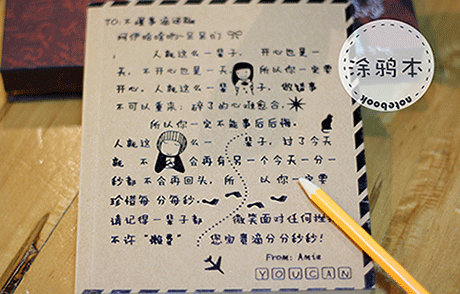 TO:不懂事海浬瓶
阿伊哈哈哟~呆呆们
人就这么一辈子,开心也是一
天,不开心也是一天 所以你一定要
开心。人就这么一辈子,做错事
不可以重来,碎了的心难愈合。
所以你一定不能事后后悔。
人就这么一 辈子,过了今天
就 不 会再有另一个今天一分一
秒都不会再回头,所 以你一定要
珍惜每分每秒
请记得一辈子都 微笑面对任何挫
不许"懒惰" 您如意满分分秒秒!
From: Amie
YOUCAN
涂鸦本
notebook